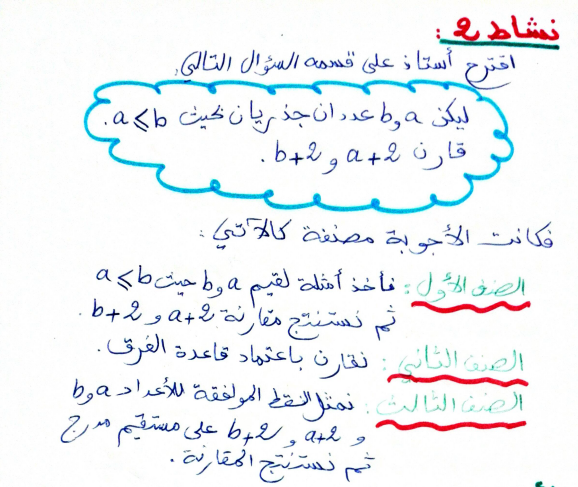 نشاط 2 :
اقترح أستاذ على قسمه السؤال التالي.
ليكن a و b عددان جذريان بحيث a ≤ b.
قارن a+2 و b+2.
فكانت الأجوبة مصنفة كالآتي :
الصنف الأول : فأخذ أمثلة لقيم a و b حيث a ≤ b
ثم نستنتج مقارنة a+2 و b+2.
الصنف الثاني : نقارن باعتماد قاعدة الفرق.
الصنف الثالث : نمثل النقط الموافقة للأعداد a و b
و a+2 و b+2 على مستقيم مدرج
ثم نستنتج المقارنة.